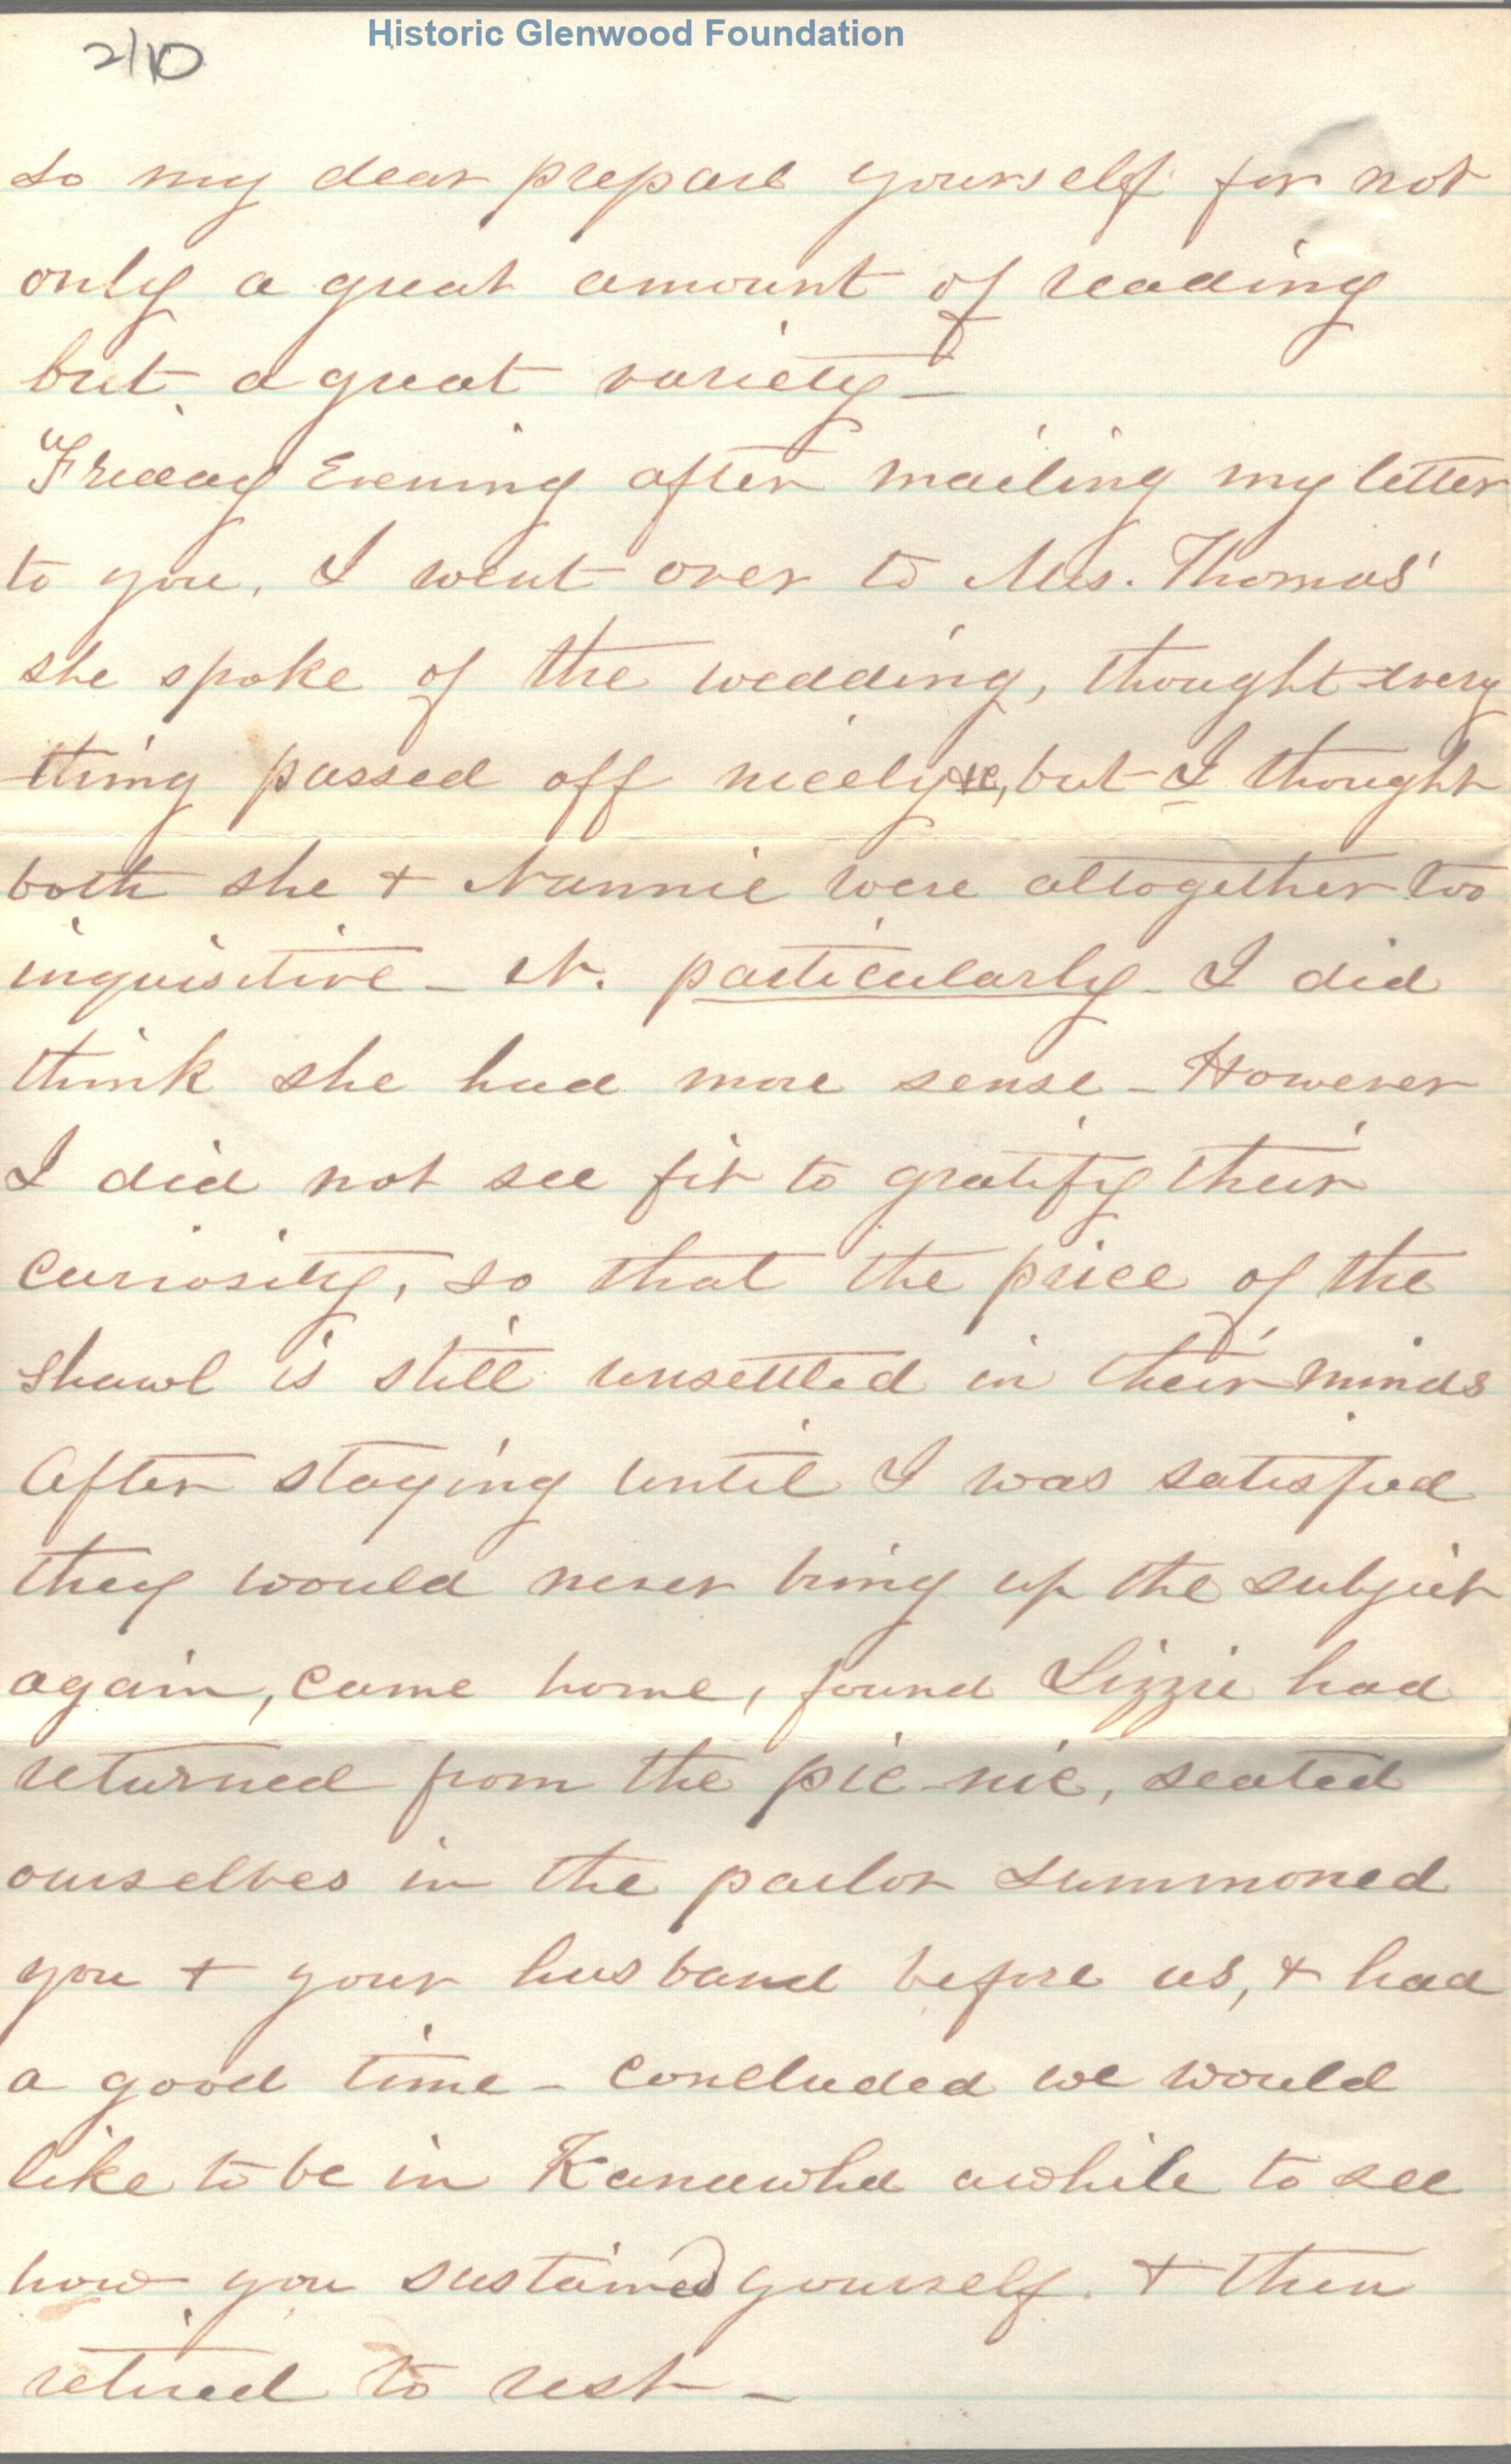 Historic Glenwood Foundation
2/10
so my dear prepare yourself for not
only a great amount of reading
but a great variety –
Friday Evening after mailing my letter
to you, I went over to Mrs. Thomas'
she spoke of the wedding, thought every
thing passed off nicely &c, but I thought
both she + Nannie were altogether too
inquisitive – N. particularly – I did
think she had more sense – However
I did not see fit to gratify their
curiosity, so that the price of the
shawl is still unsettled in their minds
After staying until I was satisfied
they would never bring up the subject
again, came home, found Lizzie had
returned from the pic-nic, seated
ourselves in the parlor summoned
you + your husband before us, + had
a good time – concluded we would
like to be in Kanawha awhile to see
how you sustained yourself. + then
retired to rest –